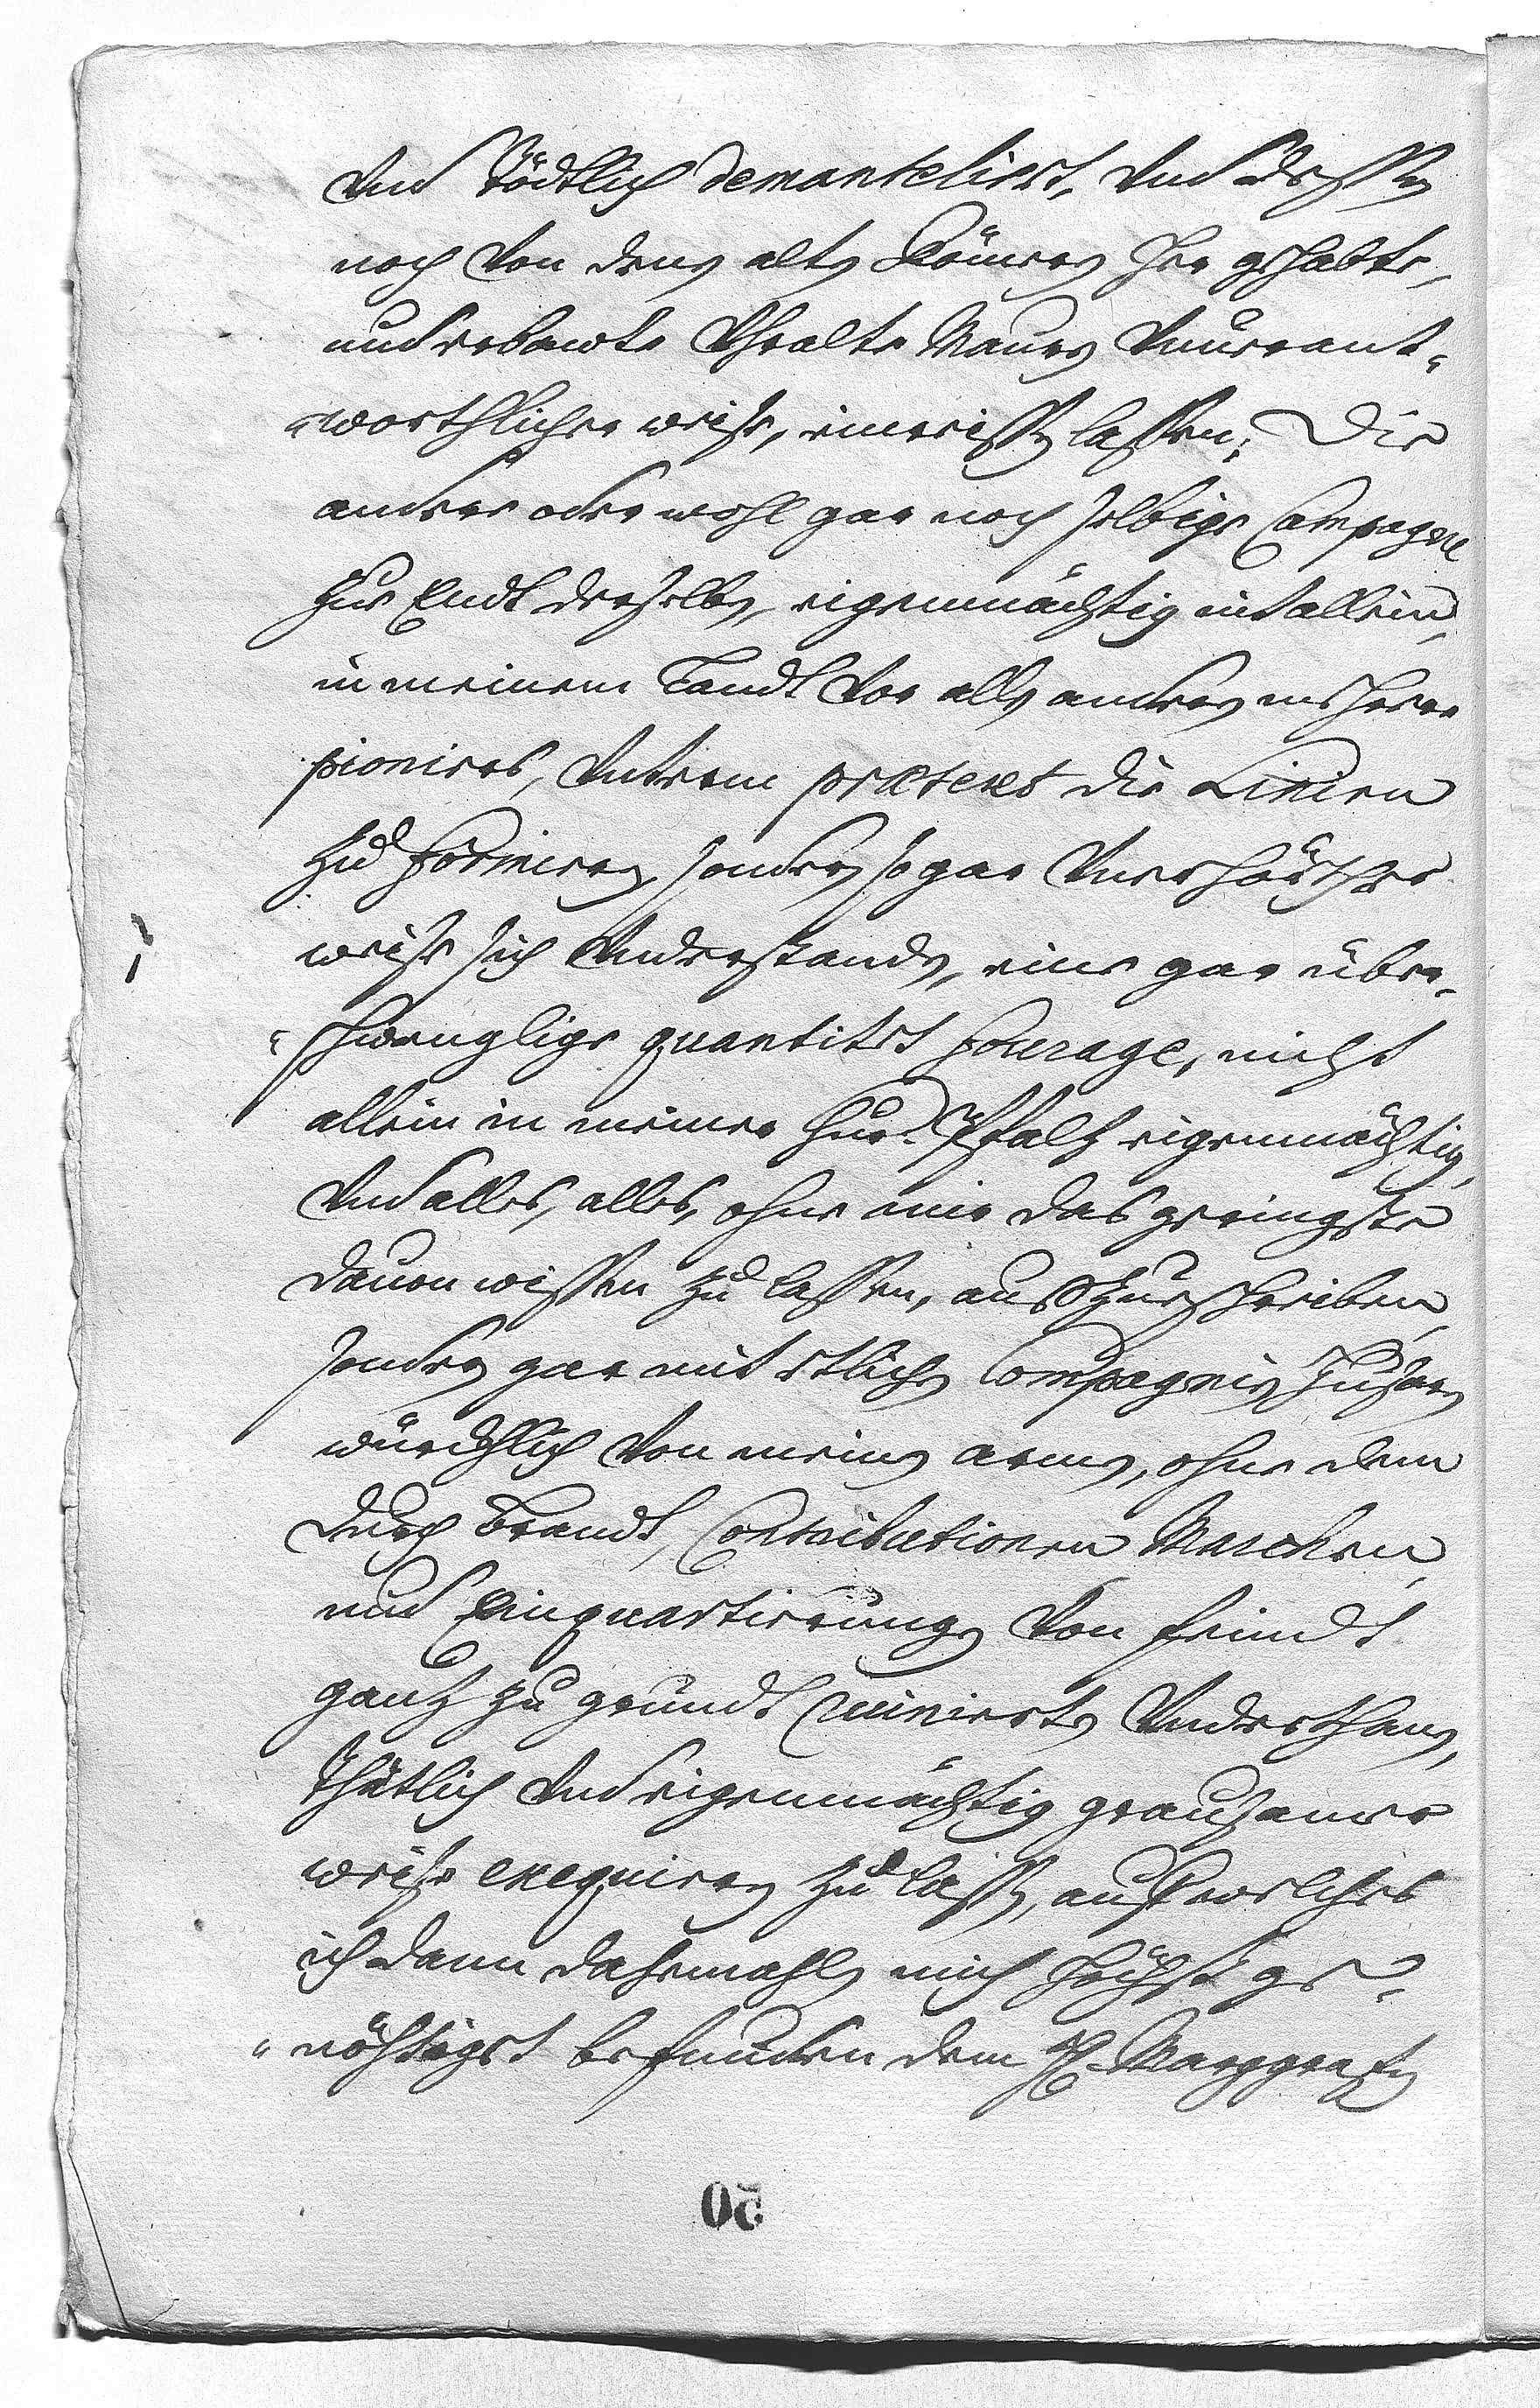 und Tödtlich demantelirt, und dessen
noch von denen alten Römern her gehabte,
und erbawte Uhralte Mauren unverant-
worthlicher weiße, einreissen lassen; Die
andere oder wohl gar noch selbige Campagne
zur Endt derselben, eigenmächtig nit allein,
in meinem Landt vor allen anderen
pionires, unterm prætext die Linien
zu formieren, sondern sogar unerhörther
weiße sich understanden, eine gar über-
schwenglige quantitet fourage, nicht
allein in meiner Chur-Pfaltz eigenmächtig,
und alles, alles, ohne mir das geringste
davon wissen zu lassen, außzuschreiben,
sondern gar mit etlichen Compagnien Husaren
würcklich von meinen armen, ohne dem
durch Brandt, Contributionen Marchen,
und Einquartierungen von feindt
gantz zu grundt ruinierten Underthanen,
thätlich und eigenmächtig graußamer
weiße exequiren zu lassen, auf welches
ich dann dahemahlen mich höchst ge-
nöhtigst befunden dem H. Marggrafen
50